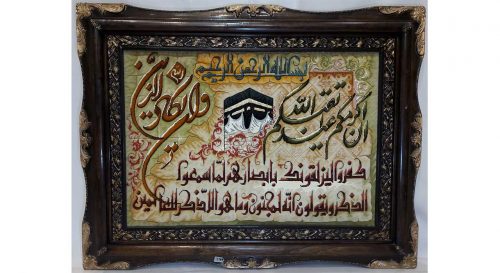 بسم الله الرحمن الرحيم
ان اكرمكم عند الله اتقيكم
وان يكاد الذين
كفروا ليزلقونك بابصارهم لما سمعوا
الذكر ويقولون انه لمجنون وما هو الا ذكر للعالمين